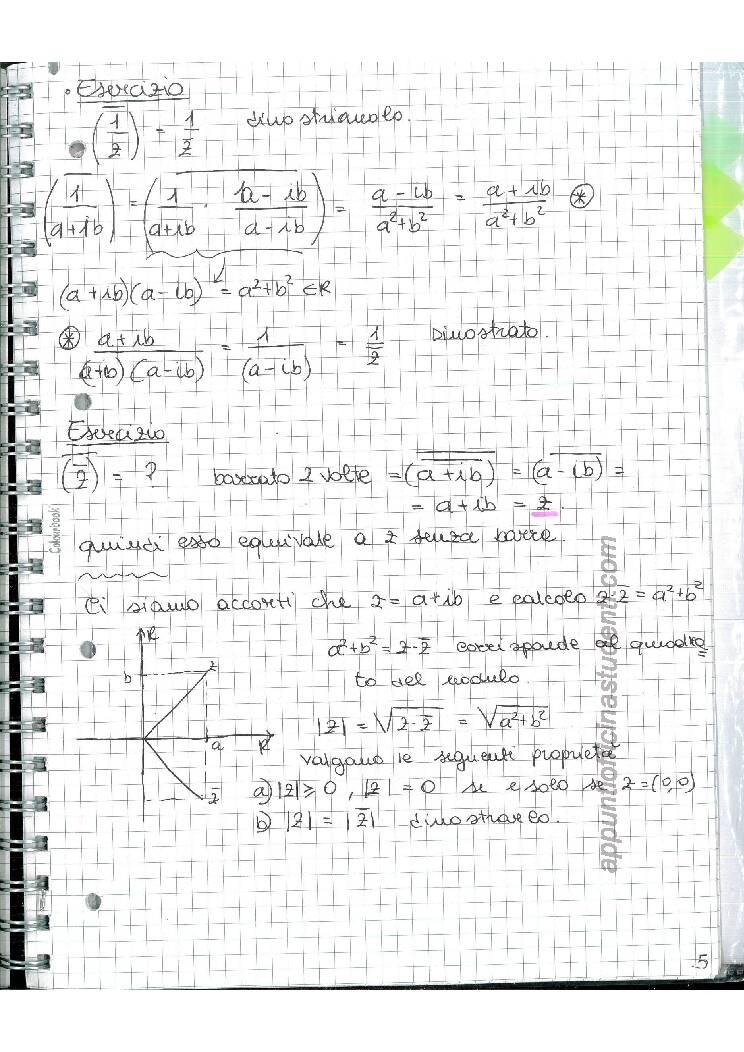 • Esercizio
$\overline{\left(\frac{1}{z}\right)} = \frac{1}{\bar{z}}$ dimostriamolo.
$\overline{\left(\frac{1}{a+ib}\right)} = \overline{\left(\frac{1}{a+ib} \cdot \frac{a-ib}{a-ib}\right)} = \frac{a-ib}{a^2+b^2} = \frac{a+ib}{a^2+b^2}$ ⊛
(a+ib)(a-ib) = a²+b² ∈ ℝ
⊛ $\frac{a+ib}{(a+b)(a-ib)} = \frac{1}{(a-ib)} = \frac{1}{\bar{z}}$ Dimostrato.
Esercizio
$\overline{(\bar{z})}$ = ? barrato 2 volte = $\overline{(\overline{a+ib})}$ = $\overline{(a-ib)}$ =
= a+ib = z.
quindi esso equivale a z senza barre
Ci siamo accorti che z = a+ib e calcolo z·z̄ = a²+b²
a²+b² = z·z̄ corrisponde al quadra=
to del modulo.
|z| = $\sqrt{z \cdot \bar{z}}$ = $\sqrt{a^2+b^2}$
valgano le seguenti proprietà
a) |z| ⩾ 0, |z| = 0 se e solo se z = (0,0)
b) |z| = |z̄| dimostrarlo.
R
b
z
a
R
z̄
Colourbook
appuntiofficinastudenti.com
5